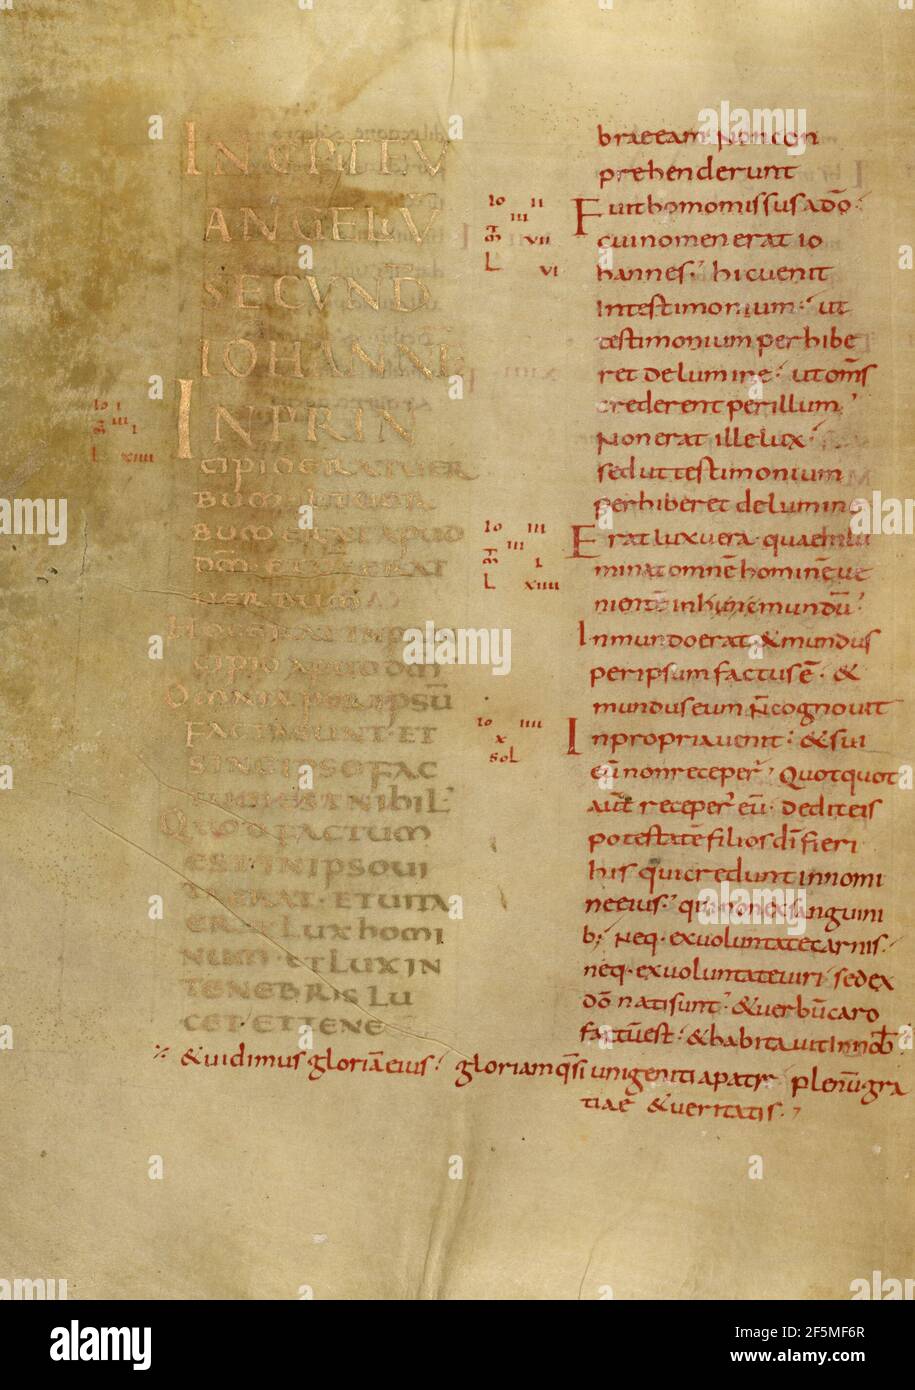 INCIPIT EV
ANGELV
SECVND
IOHANNE
INPRIN
CIPIO ERAT UER
BUM · ET UER
BUM ERAT APUD
DM̅ · ET DS̅ ERAT
UERBUM
HOC ERAT IN PRIN
CIPIO APUD DM̅
OMNIA PER IPSU̅
FACTA SUNT · ET
SINE IPSO FAC
TUM EST NIHIL
QUOD FACTUM
EST IN IPSO UI
TA ERAT · ET UITA
ERAT LUX HOMI
NUM · ET LUX IN
TENEBRIS LU
CET · ET TENE
io i
iii i
L xiiii
brae eam · Non con
prehenderunt
io ii
iii
m̅ vii
L vi
Fuit homo missus a dō ·
cui nomen erat io
hannes · hic uenit
In testimonium · ut
testimonium perhibe
ret de lumine · ut om̅s
crederent per illum
Non erat ille lux
sed ut testimonium
perhiberet de lumine
io iii
iii
m̅ i
L xiiii
Erat lux uera · quae inlu
minat omne̅ homine̅ ue
niente̅ in hunc mundu̅
In mundo erat · & mundus
per ipsum factus ē · &
mundus eum n̅ cognouit
io iiii
x
sol
In propria uenit · & sui
eū non receper̅ · Quotquot
aute̅ receper̅ eū · dedit eis
potestate̅ filios di̅ fieri
his qui credunt in nomi
ne eius · qui non ex sanguini
b; Neq · ex uoluntate carnis ·
neq · ex uoluntate uiri · sed ex
dō nati sunt · & uerbu̅ caro
factu̅ est · & habitauit in nob̅
& uidimus gloria̅ eius · gloriam q̅si unigeniti a patre plenu̅ · gra
tiae & ueritatis ·
alamy
Image ID: 2F5MF6R
www.alamy.com